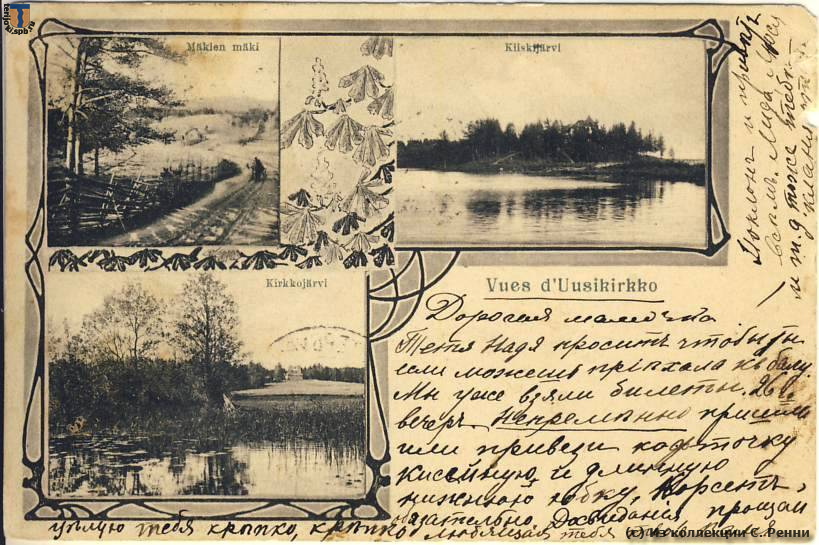 terijoki.spb.ru
Mäkien mäki
Kiiskijärvi
Kirkkojärvi
Vues d'Uusikirkko
Дорогая мамочка
Тетя Надя проситъ чтобы ты
если можешь пріѣхала къ балу
Мы уже взяли билеты. 26
вечеръ Непремѣнно пришли
или привези кофточку
кисейную и длинную
нижнюю юбку, Корсетъ,
обязательно Досвиданія прощай
цѣлую тебя крѣпко, крѣпко
любящая тебя
Поклонъ и привѣтъ
всѣмъ. Лида
и т.д тоже тебѣ
кланяются
(c) Из коллекции С. Ренни